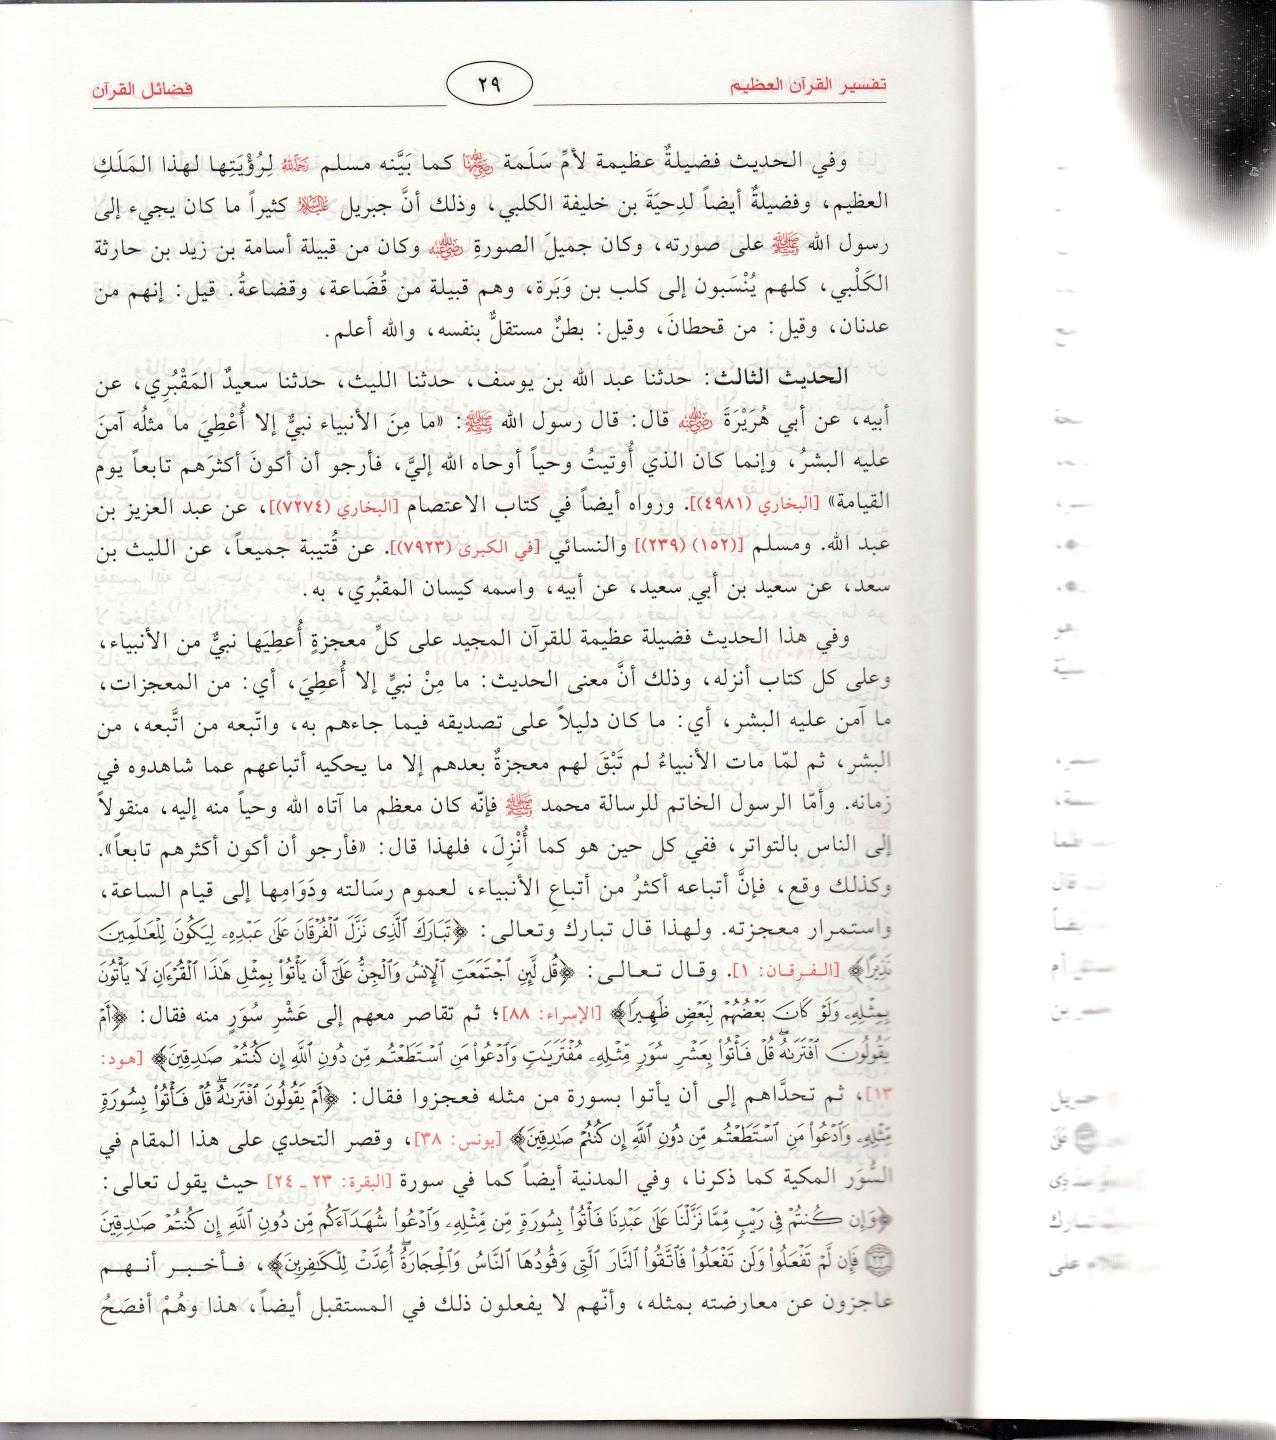 تفسير القرآن العظيم
٢٩
فضائل القرآن
وفي الحديث فضيلةٌ عظيمة لأمِّ سَلَمة رضي الله عنها كما بَيَّنه مسلم رحمه الله لِرُؤْيَتِها لهذا المَلَكِ
العظيم، وفضيلةٌ أيضاً لدِحيَةَ بن خليفة الكلبي، وذلك أنَّ جبريل عليه السلام كثيراً ما كان يجيء إلى
رسول الله ﷺ على صورته، وكان جميلَ الصورةِ رضي الله عنه وكان من قبيلة أسامة بن زيد بن حارثة
الكَلْبي، كلهم يُنْسَبون إلى كلب بن وَبَرة، وهم قبيلة من قُضَاعة، وقضاعةُ. قيل: إنهم من
عدنان، وقيل: من قحطانَ، وقيل: بطنٌ مستقلٌّ بنفسه، والله أعلم.
الحديث الثالث: حدثنا عبد الله بن يوسف، حدثنا الليث، حدثنا سعيدٌ المَقْبُرِي، عن
أبيه، عن أبي هُرَيْرَةَ رضي الله عنه قال: قال رسول الله ﷺ: «ما مِنَ الأنبياء نبيٌّ إلا أُعْطِيَ ما مثلُه آمنَ
عليه البشرُ، وإنما كان الذي أُوتيتُ وحياً أوحاه الله إليَّ، فأرجو أن أكونَ أكثرَهم تابعاً يوم
القيامة» [البخاري (٤٩٨١)]. ورواه أيضاً في كتاب الاعتصام [البخاري (٧٢٧٤)]، عن عبد العزيز بن
عبد الله. ومسلم [(١٥٢) (٢٣٩)] والنسائي [في الكبرى (٧٩٢٣)]. عن قُتيبة جميعاً، عن الليث بن
سعد، عن سعيد بن أبي سعيد، عن أبيه، واسمه كيسان المقبُري، به.
وفي هذا الحديث فضيلة عظيمة للقرآن المجيد على كلِّ معجزةٍ أُعطِيَها نبيٌّ من الأنبياء،
وعلى كل كتاب أنزله، وذلك أنَّ معنى الحديث: ما مِنْ نبيٍّ إلا أُعطِيَ، أي: من المعجزات،
ما آمن عليه البشر، أي: ما كان دليلاً على تصديقه فيما جاءهم به، واتّبعه من اتَّبعه، من
البشر، ثم لمّا مات الأنبياءُ لم تَبْقَ لهم معجزةٌ بعدهم إلا ما يحكيه أتباعهم عما شاهدوه في
زمانه. وأمّا الرسول الخاتم للرسالة محمد ﷺ فإنّه كان معظم ما آتاه الله وحياً منه إليه، منقولاً
إلى الناس بالتواتر، ففي كل حين هو كما أُنْزِلَ، فلهذا قال: «فأرجو أن أكون أكثرهم تابعاً».
وكذلك وقع، فإنَّ أتباعه أكثرُ من أتباعِ الأنبياء، لعموم رسَالته ودَوَامِها إلى قيام الساعة،
واستمرار معجزته. ولهذا قال تبارك وتعالى: ﴿تَبَارَكَ ٱلَّذِى نَزَّلَ ٱلْفُرْقَانَ عَلَىٰ عَبْدِهِۦ لِيَكُونَ لِلْعَـٰلَمِينَ
نَذِيرًا﴾ [الفرقان: ١]. وقال تعالى: ﴿قُل لَّئِنِ ٱجْتَمَعَتِ ٱلْإِنسُ وَٱلْجِنُّ عَلَىٰٓ أَن يَأْتُوا۟ بِمِثْلِ هَـٰذَا ٱلْقُرْءَانِ لَا يَأْتُونَ
بِمِثْلِهِۦ وَلَوْ كَانَ بَعْضُهُمْ لِبَعْضٍ ظَهِيرًا﴾ [الإسراء: ٨٨]؛ ثم تقاصر معهم إلى عَشْرِ سُوَرٍ منه فقال: ﴿أَمْ
يَقُولُونَ ٱفْتَرَىٰهُ ۖ قُلْ فَأْتُوا۟ بِعَشْرِ سُوَرٍ مِّثْلِهِۦ مُفْتَرَيَـٰتٍ وَٱدْعُوا۟ مَنِ ٱسْتَطَعْتُم مِّن دُونِ ٱللَّهِ إِن كُنتُمْ صَـٰدِقِينَ﴾ [هود:
١٣]، ثم تحدَّاهم إلى أن يأتوا بسورة من مثله فعجزوا فقال: ﴿أَمْ يَقُولُونَ ٱفْتَرَىٰهُ ۖ قُلْ فَأْتُوا۟ بِسُورَةٍ
مِّثْلِهِۦ وَٱدْعُوا۟ مَنِ ٱسْتَطَعْتُم مِّن دُونِ ٱللَّهِ إِن كُنتُمْ صَـٰدِقِينَ﴾ [يونس: ٣٨]، وقصر التحدي على هذا المقام في
السُّوَر المكية كما ذكرنا، وفي المدنية أيضاً كما في سورة [البقرة: ٢٣ ـ ٢٤] حيث يقول تعالى:
﴿وَإِن كُنتُمْ فِى رَيْبٍ مِّمَّا نَزَّلْنَا عَلَىٰ عَبْدِنَا فَأْتُوا۟ بِسُورَةٍ مِّن مِّثْلِهِۦ وَٱدْعُوا۟ شُهَدَآءَكُم مِّن دُونِ ٱللَّهِ إِن كُنتُمْ صَـٰدِقِينَ
٢٣ فَإِن لَّمْ تَفْعَلُوا۟ وَلَن تَفْعَلُوا۟ فَٱتَّقُوا۟ ٱلنَّارَ ٱلَّتِى وَقُودُهَا ٱلنَّاسُ وَٱلْحِجَارَةُ ۖ أُعِدَّتْ لِلْكَـٰفِرِينَ﴾، فأخبر أنهم
عاجزون عن معارضته بمثله، وأنّهم لا يفعلون ذلك في المستقبل أيضاً، هذا وهُمْ أفصَحُ